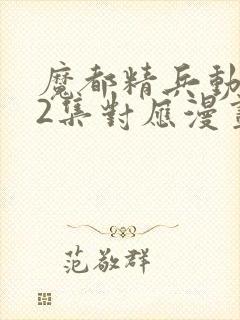 魔都精兵動
2集對應漫畫
范敬群